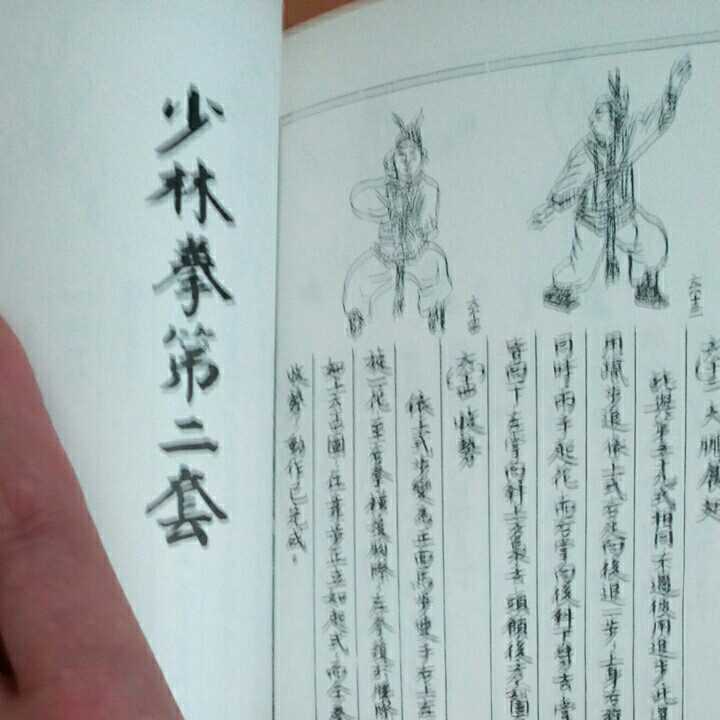 六十三大鵬展翅
此與第五十九式相同不過彼用進步此
用
步進依上式右足向後退一步，上身右
同時兩手起花，而右掌向後斜下劈去掌
背向下左掌向斜上
去頭顧後方圖
六十三
六十四收勢
依上式步變為正面馬步雙手右上左
一花至右拳橫護胸際左拳護於腰際
如上六十四圖，
正立如起式，而全套
收勢，動作已完成。
六十四
少林拳第二套